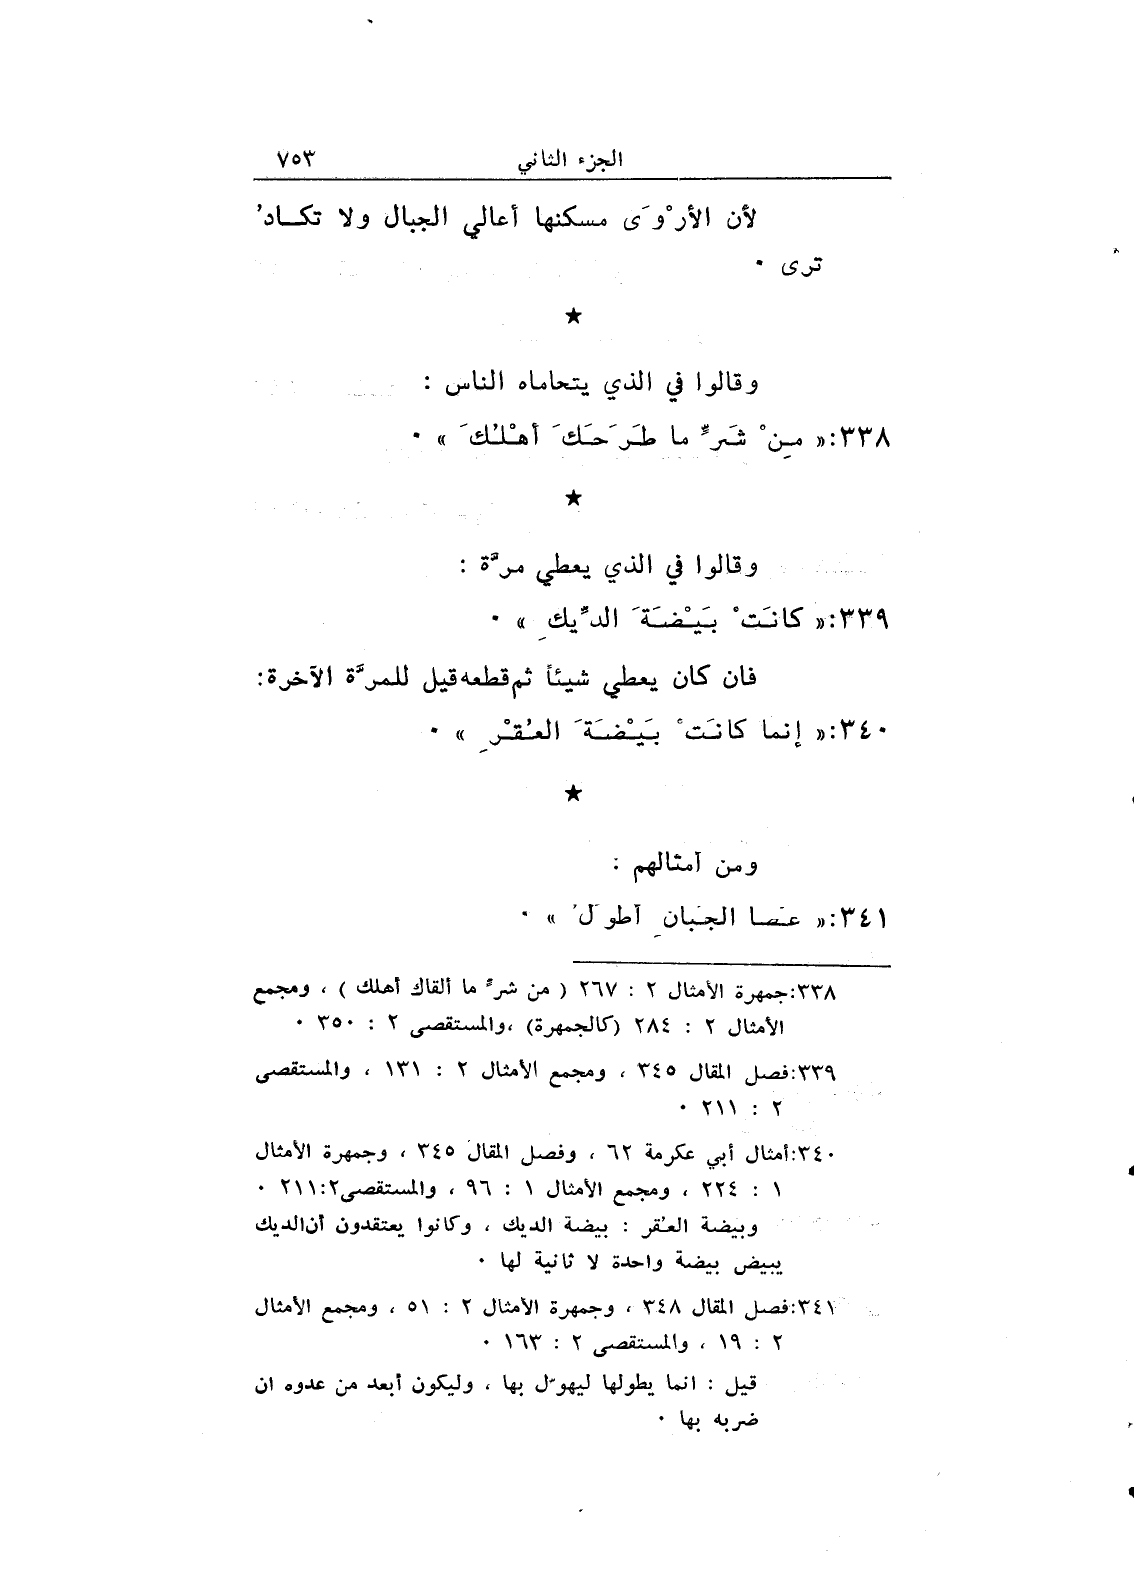 الجزء الثاني ٧٥٣
لأن الأرْوَى مسكنها أعالي الجبال ولا تكادُ
ترى ٠
★
وقالوا في الذي يتحاماه الناس :
٣٣٨:« مِنْ شَرٍّ ما طَرَحَكَ أهْلُكَ » ٠
★
وقالوا في الذي يعطي مرَّة :
٣٣٩:« كانَتْ بَيْضَةَ الدِّيكِ » ٠
فان كان يعطي شيئاً ثم قطعه قيل للمرَّة الآخرة:
٣٤٠:« إنما كانَتْ بَيْضَةَ العُقْرِ » ٠
★
ومن أمثالهم :
٣٤١:« عَصا الجَبانِ أطوَلُ » ٠
٣٣٨:جمهرة الأمثال ٢ : ٢٦٧ ( من شرٍّ ما ألقاك أهلك ) ، ومجمع
الأمثال ٢ : ٢٨٤ (كالجمهرة) ،والمستقصى ٢ : ٣٥٠ ٠
٣٣٩:فصل المقال ٣٤٥ ، ومجمع الأمثال ٢ : ١٣١ ، والمستقصى
٢ : ٢١١ ٠
٣٤٠:أمثال أبي عكرمة ٦٢ ، وفصل المقال ٣٤٥ ، وجمهرة الأمثال
١ : ٢٢٤ ، ومجمع الأمثال ١ : ٩٦ ، والمستقصى٢:٢١١ ٠
وبيضة العُقر : بيضة الديك ، وكانوا يعتقدون أن الديك
يبيض بيضة واحدة لا ثانية لها ٠
٣٤١:فصل المقال ٣٤٨ ، وجمهرة الأمثال ٢ : ٥١ ، ومجمع الأمثال
٢ : ١٩ ، والمستقصى ٢ : ١٦٣ ٠
قيل : انما يطولها ليهوّل بها ، وليكون أبعد من عدوه ان
ضربه بها ٠